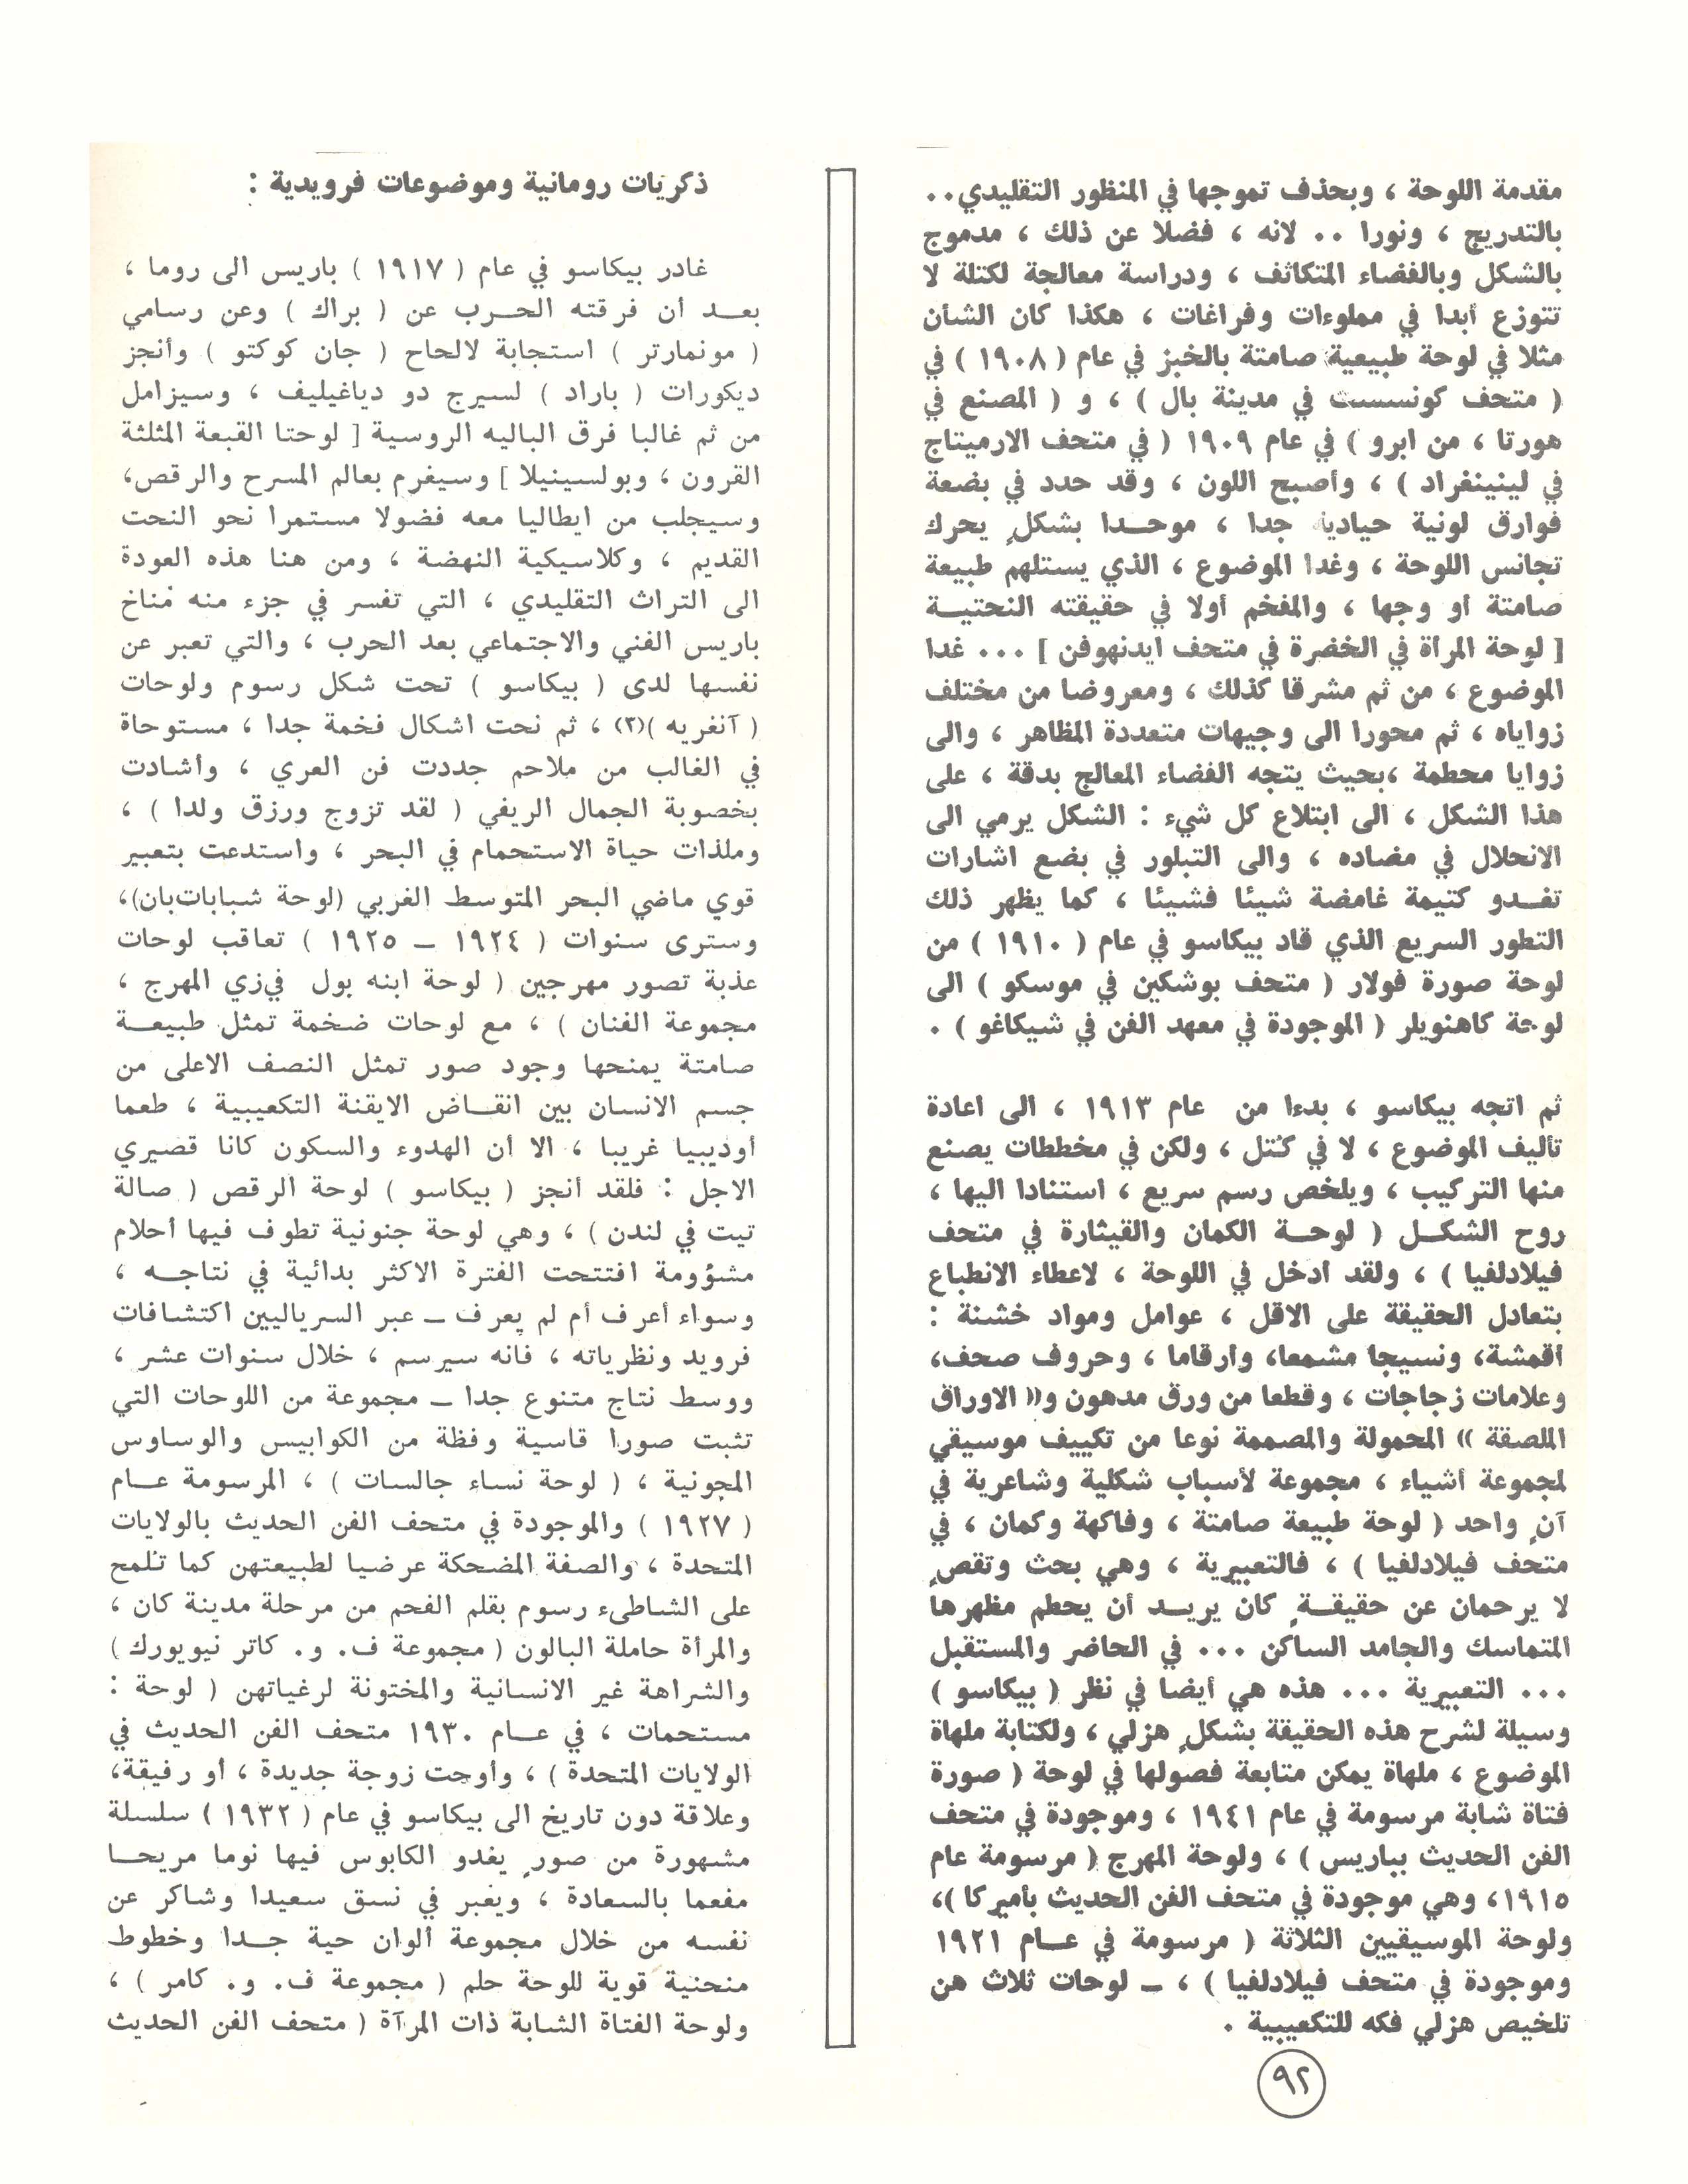 مقدمة اللوحة ، وبحذف تموجها في المنظور التقليدي..
بالتدريج ، ونورا .. لانه ، فضلا عن ذلك ، مدموج
بالشكل وبالفضاء المتكاثف ، ودراسة معالجة لكتلة لا
تتوزع أبدا في مملوءات وفراغات ، هكذا كان الشأن
مثلا في لوحة طبيعية صامتة بالخبز في عام ( ١٩٠٨ ) في
( متحف كونسست في مدينة بال ) ، و ( المصنع في
هورتا ، من ابرو ) في عام ١٩٠٩ ( في متحف الارميتاج
في لينينغراد ) ، وأصبح اللون ، وقد حدد في بضعة
فوارق لونية حيادية جدا ، موحدا بشكلٍ يحرك
تجانس اللوحة ، وغدا الموضوع ، الذي يستلهم طبيعة
صامتة أو وجها ، والمفخم أولا في حقيقته النحتية
[ لوحة المرأة في الخضرة في متحف ايدنهوفن ] ... غدا
الموضوع ، من ثم مشرقا كذلك ، ومعروضا من مختلف
زواياه ، ثم محورا الى وجيهات متعددة المظاهر ، والى
زوايا محطمة ،بحيث يتجه الفضاء المعالج بدقة ، على
هذا الشكل ، الى ابتلاع كل شيء : الشكل يرمي الى
الانحلال في مضاده ، والى التبلور في بضع اشارات
تغدو كتيمة غامضة شيئا فشيئا ، كما يظهر ذلك
التطور السريع الذي قاد بيكاسو في عام ( ١٩١٠ ) من
لوحة صورة فولار ( متحف بوشكين في موسكو ) الى
لوحة كاهنويلر ( الموجودة في معهد الفن في شيكاغو ) .
ثم اتجه بيكاسو ، بدءا من عام ١٩١٣ ، الى اعادة
تأليف الموضوع ، لا في كتل ، ولكن في مخططات يصنع
منها التركيب ، ويلخص رسم سريع ، استنادا اليها ،
روح الشكل ( لوحة الكمان والقيثارة في متحف
فيلادلفيا ) ، ولقد أدخل في اللوحة ، لاعطاء الانطباع
بتعادل الحقيقة على الاقل ، عوامل ومواد خشنة :
أقمشة، ونسيجا مشمعا، وأرقاما ، وحروف صحف،
وعلامات زجاجات ، وقطعا من ورق مدهون و« الاوراق
الملصقة » المحمولة والمصممة نوعا من تكييف موسيقي
لمجموعة أشياء ، مجموعة لأسباب شكلية وشاعرية في
آنٍ واحد ( لوحة طبيعة صامتة ، وفاكهة وكمان ، في
متحف فيلادلفيا ) ، فالتعبيرية ، وهي بحث وتقصٍ
لا يرحمان عن حقيقةٍ كان يريد أن يحطم مظهرها
المتماسك والجامد الساكن ... في الحاضر والمستقبل
... التعبيرية ... هذه هي أيضا في نظر ( بيكاسو )
وسيلة لشرح هذه الحقيقة بشكلٍ هزلي ، ولكتابة ملهاة
الموضوع ، ملهاة يمكن متابعة فصولها في لوحة ( صورة
فتاة شابة مرسومة في عام ١٩٤١ ، وموجودة في متحف
الفن الحديث بباريس ) ، ولوحة المهرج ( مرسومة عام
١٩١٥، وهي موجودة في متحف الفن الحديث بأميركا )،
ولوحة الموسيقيين الثلاثة ( مرسومة في عام ١٩٢١
وموجودة في متحف فيلادلفيا ) ، ـ لوحات ثلاث هن
تلخيص هزلي فكه للتكعيبية .
ذكريات رومانية وموضوعات فرويدية :
غادر بيكاسو في عام ( ١٩١٧ ) باريس الى روما ،
بعد أن فرقته الحرب عن ( براك ) وعن رسامي
( مونمارتر ) استجابة لالحاح ( جان كوكتو ) وأنجز
ديكورات ( باراد ) لسيرج دو دياغيليف ، وسيزامل
من ثم غالبا فرق الباليه الروسية [ لوحتا القبعة المثلثة
القرون ، وبولسينيلا ] وسيغرم بعالم المسرح والرقص،
وسيجلب من ايطاليا معه فضولا مستمرا نحو النحت
القديم ، وكلاسيكية النهضة ، ومن هنا هذه العودة
الى التراث التقليدي ، التي تفسر في جزء منه مُناخ
باريس الفني والاجتماعي بعد الحرب ، والتي تعبر عن
نفسها لدى ( بيكاسو ) تحت شكل رسوم ولوحات
( آنغريه )(٣) ، ثم نحت اشكال فخمة جدا ، مستوحاة
في الغالب من ملاحم جددت فن العري ، وأشادت
بخصوبة الجمال الريفي ( لقد تزوج ورزق ولدا ) ،
وملذات حياة الاستحمام في البحر ، واستدعت بتعبير
قوي ماضي البحر المتوسط الغربي (لوحة شبابات‌بان)،
وسترى سنوات ( ١٩٢٤ – ١٩٢٥ ) تعاقب لوحات
عذبة تصور مهرجين ( لوحة ابنه بول في‌زي المهرج ،
مجموعة الفنان ) ، مع لوحات ضخمة تمثل طبيعة
صامتة يمنحها وجود صور تمثل النصف الاعلى من
جسم الانسان بين انقاض الايقنة التكعيبية ، طعما
أوديبيا غريبا ، الا أن الهدوء والسكون كانا قصيري
الاجل : فلقد أنجز ( بيكاسو ) لوحة الرقص ( صالة
تيت في لندن ) ، وهي لوحة جنونية تطوف فيها أحلام
مشؤومة افتتحت الفترة الاكثر بدائية في نتاجه ،
وسواء أعرف أم لم يعرف ـ عبر السرياليين اكتشافات
فرويد ونظرياته ، فانه سيرسم ، خلال سنوات عشر ،
ووسط نتاج متنوع جدا ـ مجموعة من اللوحات التي
تثبت صورا قاسية وفظة من الكوابيس والوساوس
المجونية ، ( لوحة نساء جالسات ) ، المرسومة عام
( ١٩٢٧ ) والموجودة في متحف الفن الحديث بالولايات
المتحدة ، والصفة المضحكة عرضيا لطبيعتهن كما تُلمح
على الشاطىء رسوم بقلم الفحم من مرحلة مدينة كان ،
والمرأة حاملة البالون ( مجموعة ف. و. كاتر نيويورك )
والشراهة غير الانسانية والمختونة لرغباتهن ( لوحة :
مستحمات ، في عام ١٩٣٠ متحف الفن الحديث في
الولايات المتحدة ) ، وأوحت زوجة جديدة ، أو رفيقة،
وعلاقة دون تاريخ الى بيكاسو في عام ( ١٩٣٢ ) سلسلة
مشهورة من صورٍ يغدو الكابوس فيها نوما مريحا
مفعما بالسعادة ، ويعبر في نسق سعيدا وشاكر عن
نفسه من خلال مجموعة ألوان حية جدا وخطوط
منحنية قوية للوحة حلم ( مجموعة ف. و. كامر ) ،
ولوحة الفتاة الشابة ذات المرآة ( متحف الفن الحديث
٩٢